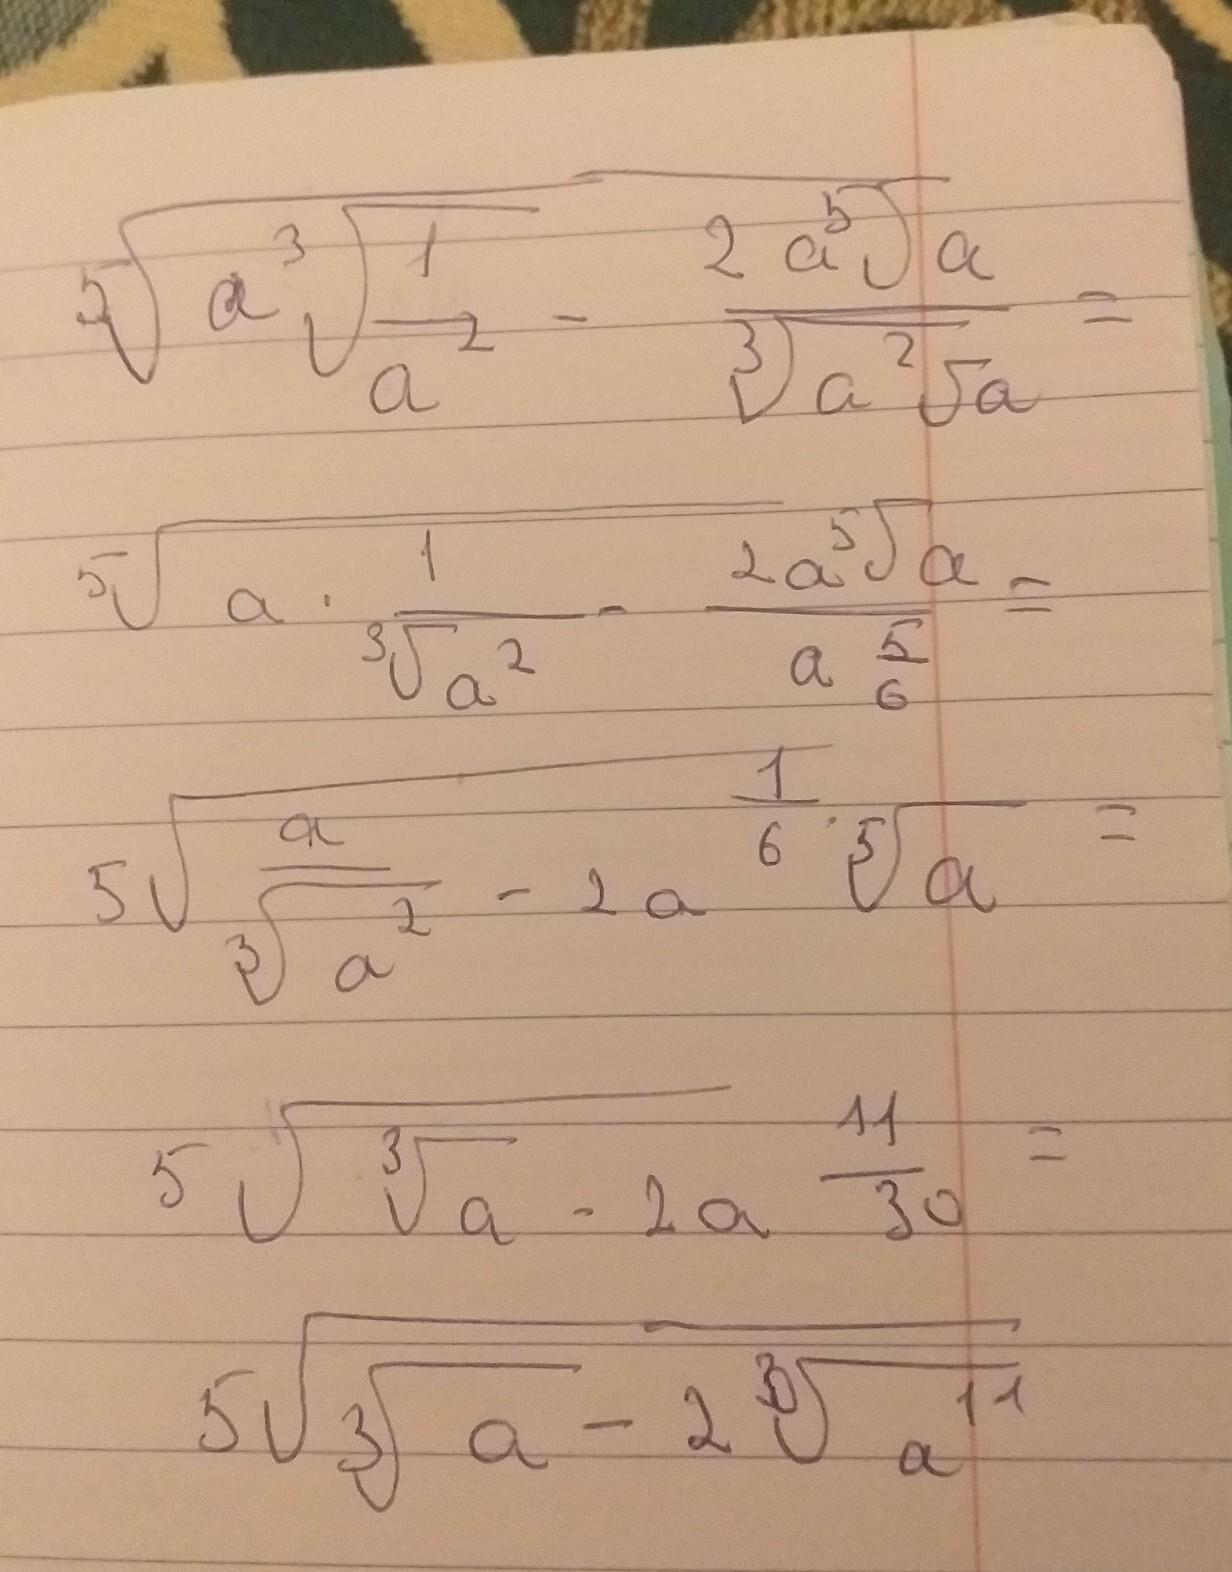 ⁵√(a ³√(1/a²) - (2a ⁵√a)/(³√(a²√a))) =
⁵√(a · 1/(³√a²) - (2a ⁵√a)/(a^(5/6))) =
5√(a/(³√a²) - 2a^(1/6) · ⁵√a) =
5√(³√a - 2a^(11/30)) =
5√(3√a - 2 ³⁰√a¹¹)